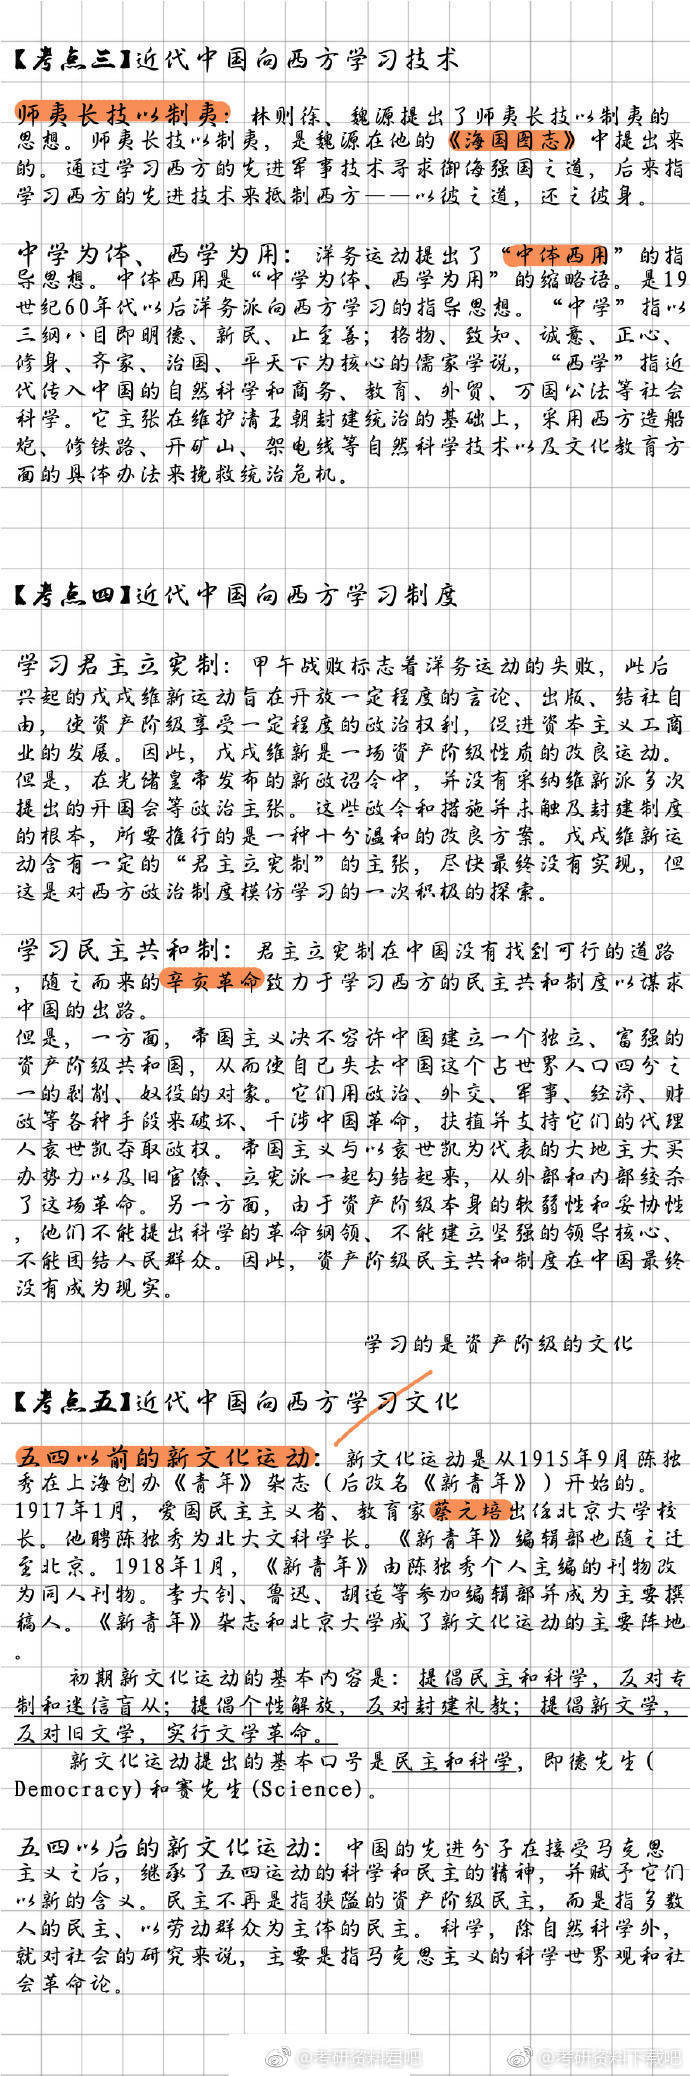 【考点三】近代中国向西方学习技术
师夷长技以制夷：林则徐、魏源提出了师夷长技以制夷的
思想。师夷长技以制夷，是魏源在他的《海国图志》中提出来
的。通过学习西方的先进军事技术寻求御侮强国之道，后来指
学习西方的先进技术来抵制西方——以彼之道，还之彼身。
中学为体、西学为用：洋务运动提出了“中体西用”的指
导思想。中体西用是“中学为体、西学为用”的缩略语。是19
世纪60年代以后洋务派向西方学习的指导思想。“中学”指以
三纲八目即明德、新民、止至善；格物、致知、诚意、正心、
修身、齐家、治国、平天下为核心的儒家学说，“西学”指近
代传入中国的自然科学和商务、教育、外贸、万国公法等社会
科学。它主张在维护清王朝封建统治的基础上，采用西方造船
炮、修铁路、开矿山、架电线等自然科学技术以及文化教育方
面的具体办法来挽救统治危机。
【考点四】近代中国向西方学习制度
学习君主立宪制：甲午战败标志着洋务运动的失败，此后
兴起的戊戌维新运动旨在开放一定程度的言论、出版、结社自
由，使资产阶级享受一定程度的政治权利，促进资本主义工商
业的发展。因此，戊戌维新是一场资产阶级性质的改良运动。
但是，在光绪皇帝发布的新政诏令中，并没有采纳维新派多次
提出的开国会等政治主张。这些政令和措施并未触及封建制度
的根本，所要推行的是一种十分温和的改良方案。戊戌维新运
动含有一定的“君主立宪制”的主张，尽快最终没有实现，但
这是对西方政治制度模仿学习的一次积极的探索。
学习民主共和制：君主立宪制在中国没有找到可行的道路
，随之而来的辛亥革命致力于学习西方的民主共和制度以谋求
中国的出路。
但是，一方面，帝国主义决不容许中国建立一个独立、富强的
资产阶级共和国，从而使自己失去中国这个占世界人口四分之
一的剥削、奴役的对象。它们用政治、外交、军事、经济、财
政等各种手段来破坏、干涉中国革命，扶植并支持它们的代理
人袁世凯夺取政权。帝国主义与以袁世凯为代表的大地主大买
办势力以及旧官僚、立宪派一起勾结起来，从外部和内部绞杀
了这场革命。另一方面，由于资产阶级本身的软弱性和妥协性
，他们不能提出科学的革命纲领、不能建立坚强的领导核心、
不能团结人民群众。因此，资产阶级民主共和制度在中国最终
没有成为现实。
学习的是资产阶级的文化
【考点五】近代中国向西方学习文化
五四以前的新文化运动：新文化运动是从1915年9月陈独
秀在上海创办《青年》杂志（后改名《新青年》）开始的。
1917年1月，爱国民主主义者、教育家蔡元培出任北京大学校
长。他聘陈独秀为北大文科学长。《新青年》编辑部也随之迁
至北京。1918年1月，《新青年》由陈独秀个人主编的刊物改
为同人刊物。李大钊、鲁迅、胡适等参加编辑部并成为主要撰
稿人。《新青年》杂志和北京大学成了新文化运动的主要阵地
。
初期新文化运动的基本内容是：提倡民主和科学，反对专
制和迷信盲从；提倡个性解放，反对封建礼教；提倡新文学，
反对旧文学，实行文学革命。
新文化运动提出的基本口号是民主和科学，即德先生(
Democracy)和赛先生(Science)。
五四以后的新文化运动：中国的先进分子在接受马克思
主义之后，继承了五四运动的科学和民主的精神，并赋予它们
以新的含义。民主不再是指狭隘的资产阶级民主，而是指多数
人的民主、以劳动群众为主体的民主。科学，除自然科学外，
就对社会的研究来说，主要是指马克思主义的科学世界观和社
会革命论。
@考研资料君吧
@考研资料下载吧